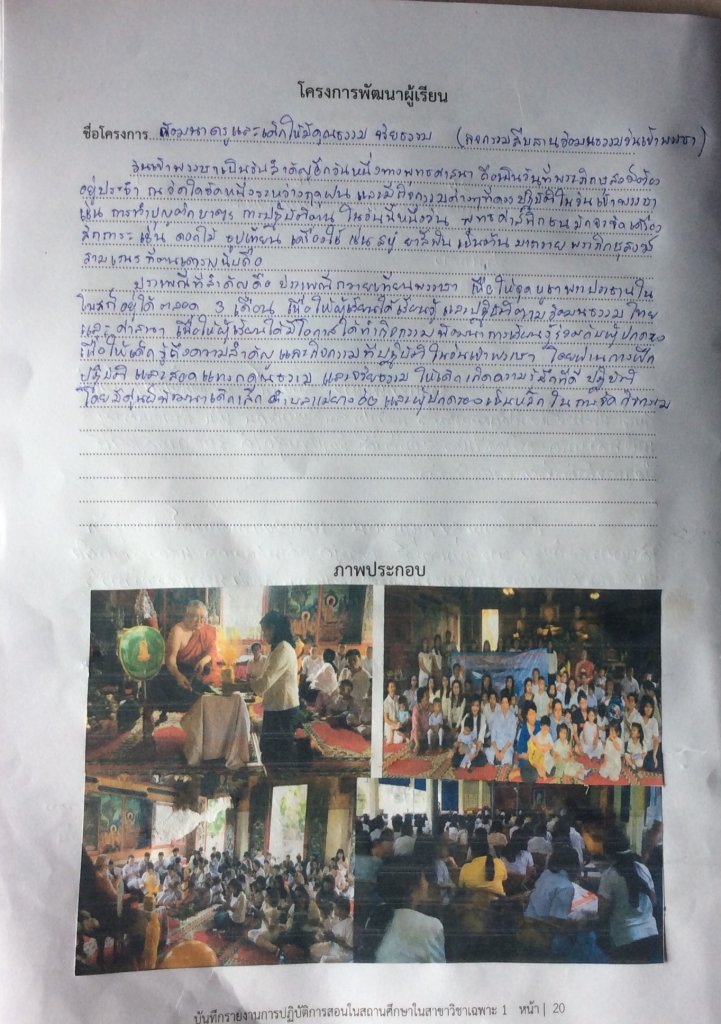 โครงการพัฒนาผู้เรียน
ชื่อโครงการ พัฒนาครูและเด็กให้มีคุณธรรม จริยธรรม (กิจกรรมสืบสานวัฒนธรรมวันเข้าพรรษา)
วันเข้าพรรษาเป็นวันสำคัญอีกวันหนึ่งทางพุทธศาสนา ถือเป็นวันที่พระภิกษุสงฆ์ต้อง
อยู่ประจำ ณ วัดใดวัดหนึ่งระหว่างฤดูฝน และมีกิจกรรมต่างๆที่ควรปฏิบัติในวันเข้าพรรษา
เช่น การทำบุญตักบาตร การปฏิบัติตาม ในวันนี้หนึ่งวัน พุทธศาสนิกชน มักจะจัดเครื่อง
สักการะ เช่น ดอกไม้ ธูปเทียน เครื่องใช้ เช่น สบู่ ยาสีฟัน เป็นต้น มาถวาย พระภิกษุสงฆ์
สามเณร ที่ตนเคารพนับถือ
ประเพณีที่สำคัญคือ ประเพณีถวายเทียนพรรษา เพื่อให้จุดบูชาพระประธานใน
โบสถ์อยู่ได้ตลอด 3 เดือน เพื่อให้ผู้เรียนได้เรียนรู้ และปฏิบัติตามวัฒนธรรมไทย
และศาสนา เพื่อให้ผู้เรียนได้มีโอกาสได้ทำกิจกรรมพัฒนาการเรียนรู้ร่วมกับผู้ปกครอง
เพื่อให้เด็กรู้ถึงความสำคัญ และกิจกรรมที่ปฏิบัติในวันเข้าพรรษา โดยผ่านการฝึก
ปฏิบัติ และสอดแทรกคุณธรรม และจริยธรรม ให้เด็กเกิดความรู้สึกที่ดี ปฏิบัติ
โดยมีศูนย์พัฒนาเด็กเล็ก ตำบลแม่ยางฮ่อ และผู้ปกครองเป็นหลัก ในการจัดกิจกรรม
ภาพประกอบ
บันทึกรายงานการปฏิบัติการสอนในสถานศึกษาในสาขาวิชาเฉพาะ 1 หน้า | 20